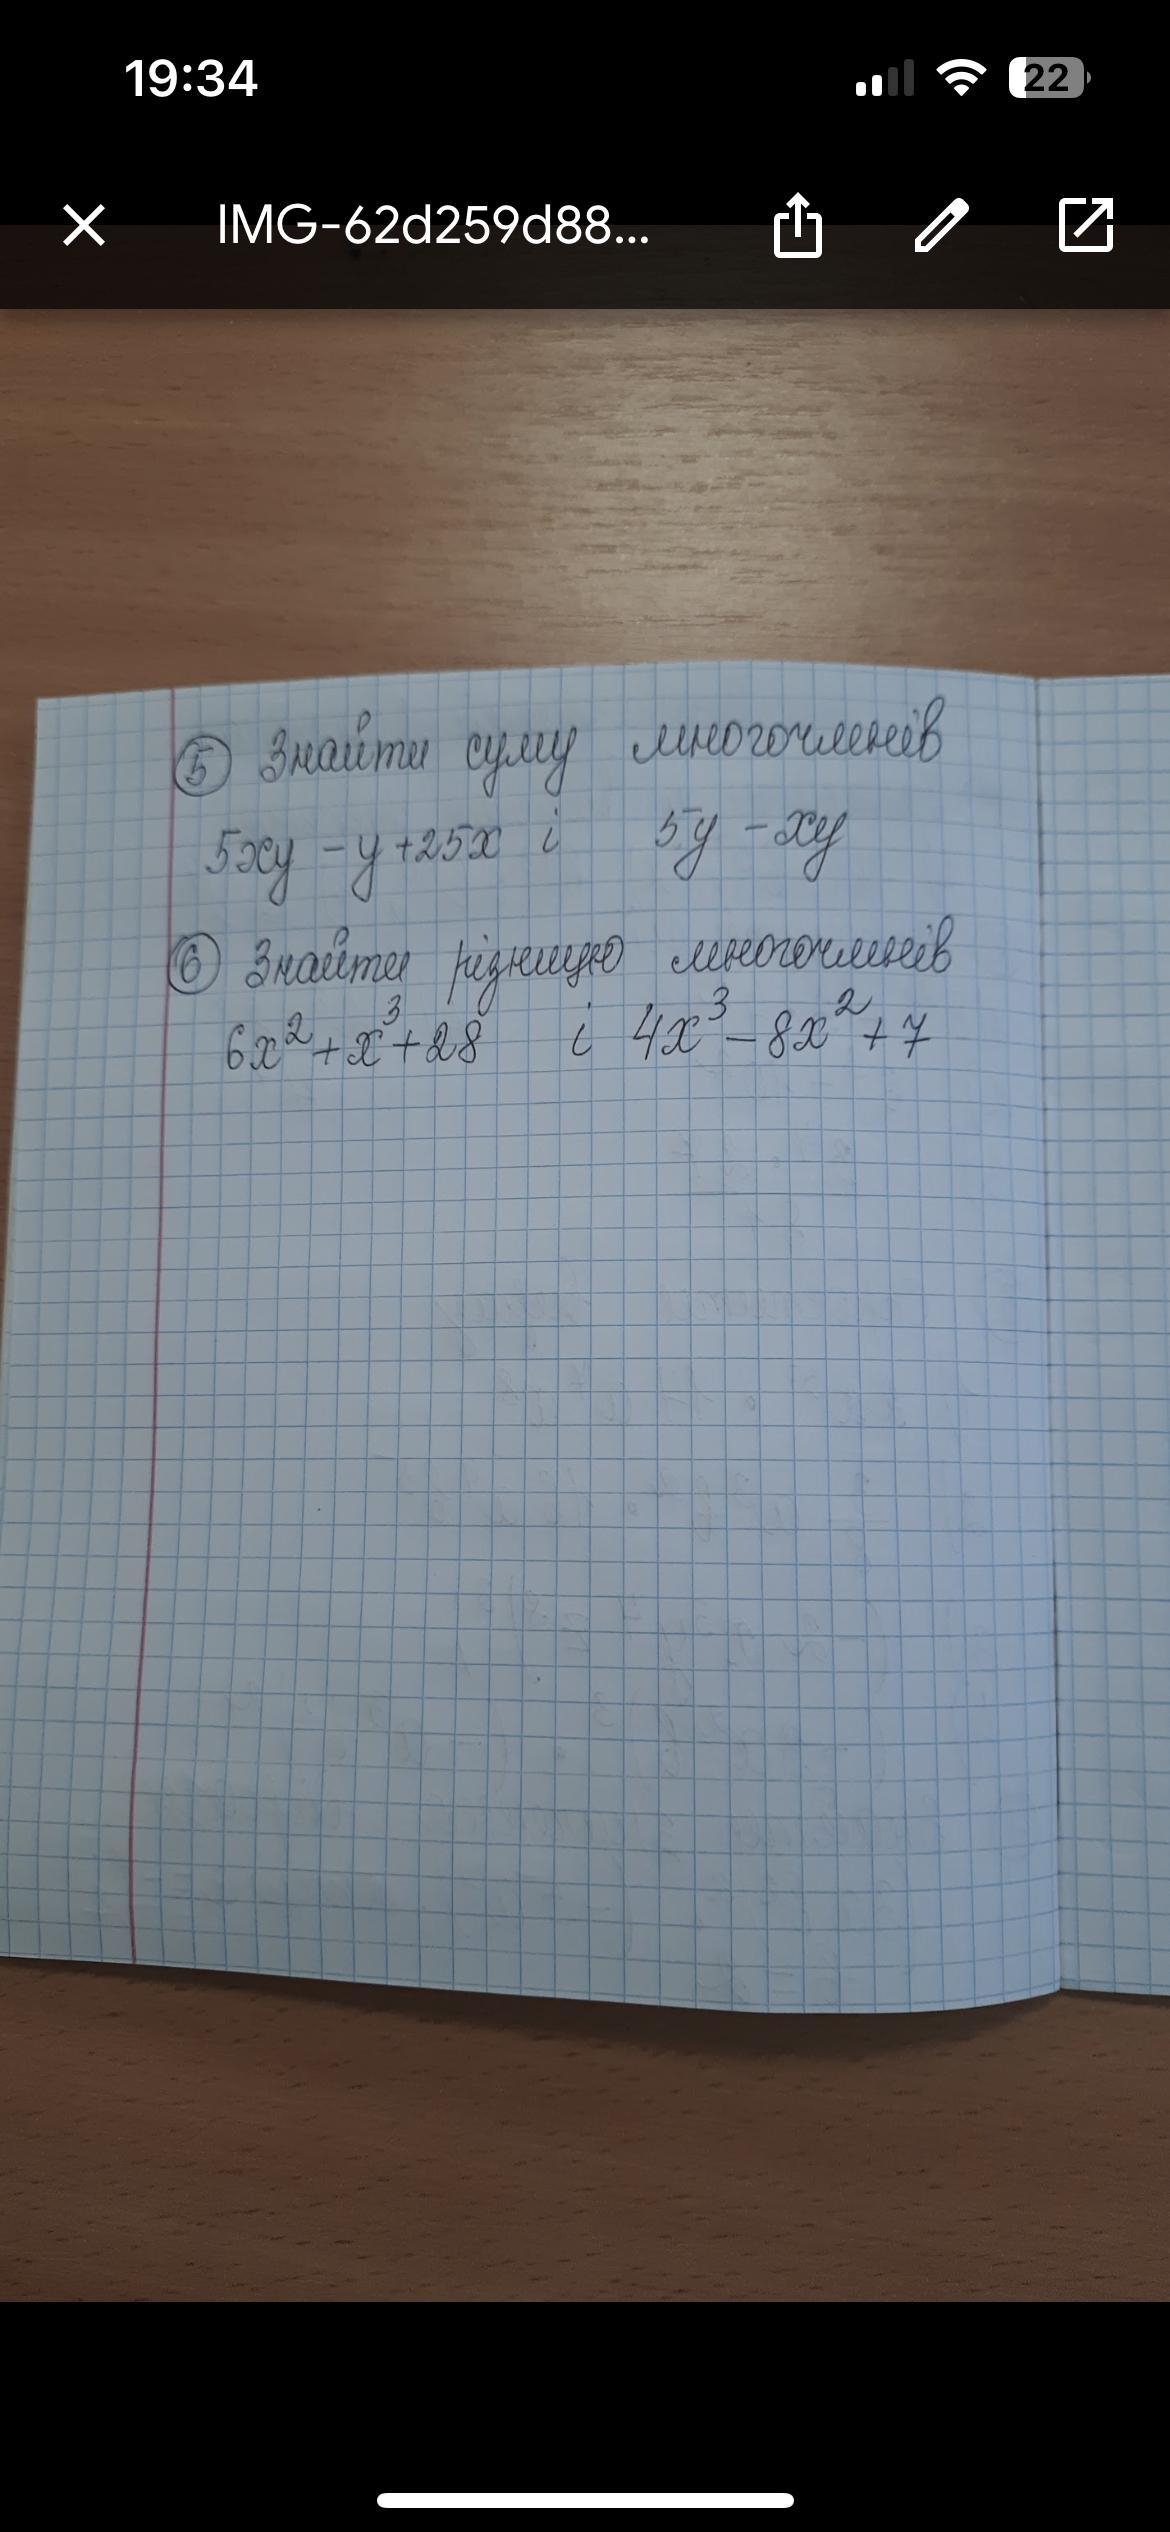 19:34
22
IMG-62d259d88...
⑤ Знайти суму многочленів
5xy - y + 25x і 5y - xy
⑥ Знайти різницю многочленів
6x² + x³ + 28 і 4x³ - 8x² + 7